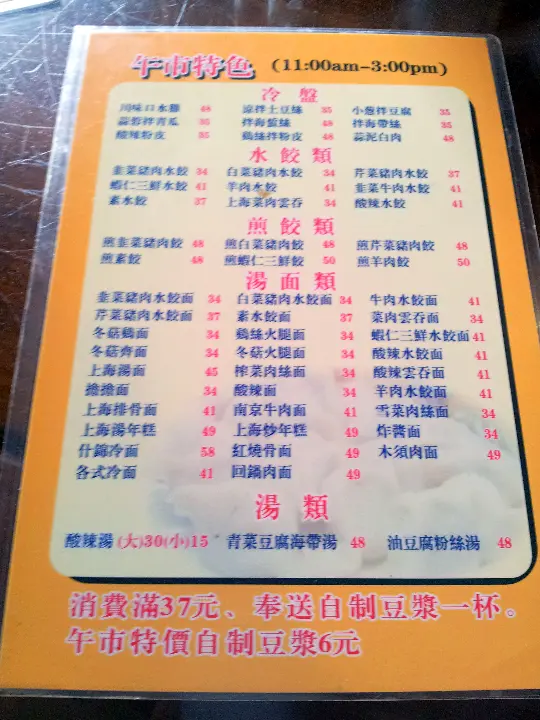 午市特色 (11:00am-3:00pm)
冷盤
川味口水雞 48 涼拌土豆絲 35 小蔥拌豆腐 35
蒜蓉拌青瓜 35 拌海蜇絲 48 拌海帶絲 35
酸辣粉皮 35 鷄絲拌粉皮 48 蒜泥白肉 48
水餃類
韭菜豬肉水餃 34 白菜豬肉水餃 34 芹菜豬肉水餃 37
蝦仁三鮮水餃 41 羊肉水餃 41 韭菜牛肉水餃 41
素水餃 37 上海菜肉雲吞 34 酸辣水餃 41
煎餃類
煎韭菜豬肉餃 48 煎白菜豬肉餃 48 煎芹菜豬肉餃 48
煎素餃 48 煎蝦仁三鮮餃 50 煎羊肉餃 50
湯面類
韭菜豬肉水餃面 34 白菜豬肉水餃面 34 牛肉水餃面 41
芹菜豬肉水餃面 37 素水餃面 37 菜肉雲吞面 34
冬菇鷄面 34 鷄絲火腿面 34 蝦仁三鮮水餃面 41
冬菇齊面 34 冬菇火腿面 34 酸辣水餃面 41
上海湯面 45 榨菜肉絲面 34 酸辣雲吞面 41
擔擔面 34 酸辣面 34 羊肉水餃面 41
上海排骨面 41 南京牛肉面 41 雪菜肉絲面 34
上海湯年糕 49 上海炒年糕 49 炸醬面 34
什錦冷面 58 紅燒骨面 49 木須肉面 49
各式冷面 41 回鍋肉面 49
湯類
酸辣湯(大)30(小)15 青菜豆腐海帶湯 48 油豆腐粉絲湯 48
消費滿37元、奉送自制豆漿一杯。
午市特價自制豆漿6元